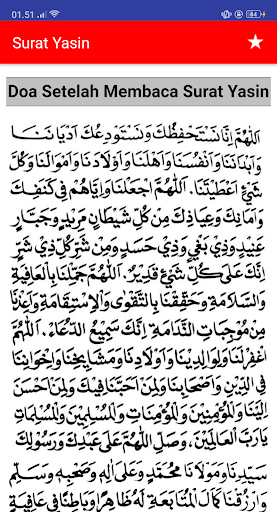 01.51
84
Surat Yasin
Doa Setelah Membaca Surat Yasin
اَللّٰهُمَّ إِنَّا نَسْتَحْفِظُكَ وَنَسْتَوْدِعُكَ أَدْيَانَنَا
وَأَبْدَانَنَا وَأَنْفُسَنَا وَأَهْلَنَا وَأَوْلَادَنَا وَأَمْوَالَنَا وَكُلَّ
شَيْءٍ أَعْطَيْتَنَا. اَللّٰهُمَّ اجْعَلْنَا وَإِيَّاهُمْ فِيْ كَنَفِكَ
وَأَمَانِكَ وَعِيَاذِكَ مِنْ كُلِّ شَيْطَانٍ مَرِيْدٍ وَجَبَّارٍ
عَنِيْدٍ وَذِيْ بَغْيٍ وَذِيْ حَسَدٍ وَمِنْ شَرِّ كُلِّ ذِيْ شَرٍّ
إِنَّكَ عَلَى كُلِّ شَيْءٍ قَدِيْرٌ. اَللّٰهُمَّ جَمِّلْنَا بِالْعَافِيَةِ
وَالسَّلَامَةِ وَحَقِّقْنَا بِالتَّقْوَى وَالْاِسْتِقَامَةِ وَأَعِذْنَا
مِنْ مُوْجِبَاتِ النَّدَامَةِ إِنَّكَ سَمِيْعُ الدُّعَاءِ. اَللّٰهُمَّ
اغْفِرْ لَنَا وَلِوَالِدَيْنَا وَأَوْلَادِنَا وَمَشَايِخِنَا وَإِخْوَانِنَا
فِي الدِّيْنِ وَأَصْحَابِنَا وَلِمَنْ أَحَبَّنَا فِيْكَ وَلِمَنْ أَحْسَنَ
إِلَيْنَا وَلِلْمُؤْمِنِيْنَ وَالْمُؤْمِنَاتِ وَالْمُسْلِمِيْنَ وَالْمُسْلِمَاتِ
يَا رَبَّ الْعَالَمِيْنَ، وَصَلِّ اللّٰهُمَّ عَلَى عَبْدِكَ وَرَسُوْلِكَ
سَيِّدِنَا وَمَوْلَانَا مُحَمَّدٍ وَعَلَى آلِهِ وَصَحْبِهِ وَسَلِّمْ
وَارْزُقْنَا كَمَالَ الْمُتَابَعَةِ لَهُ ظَاهِرًا وَبَاطِنًا فِيْ عَافِيَةٍ